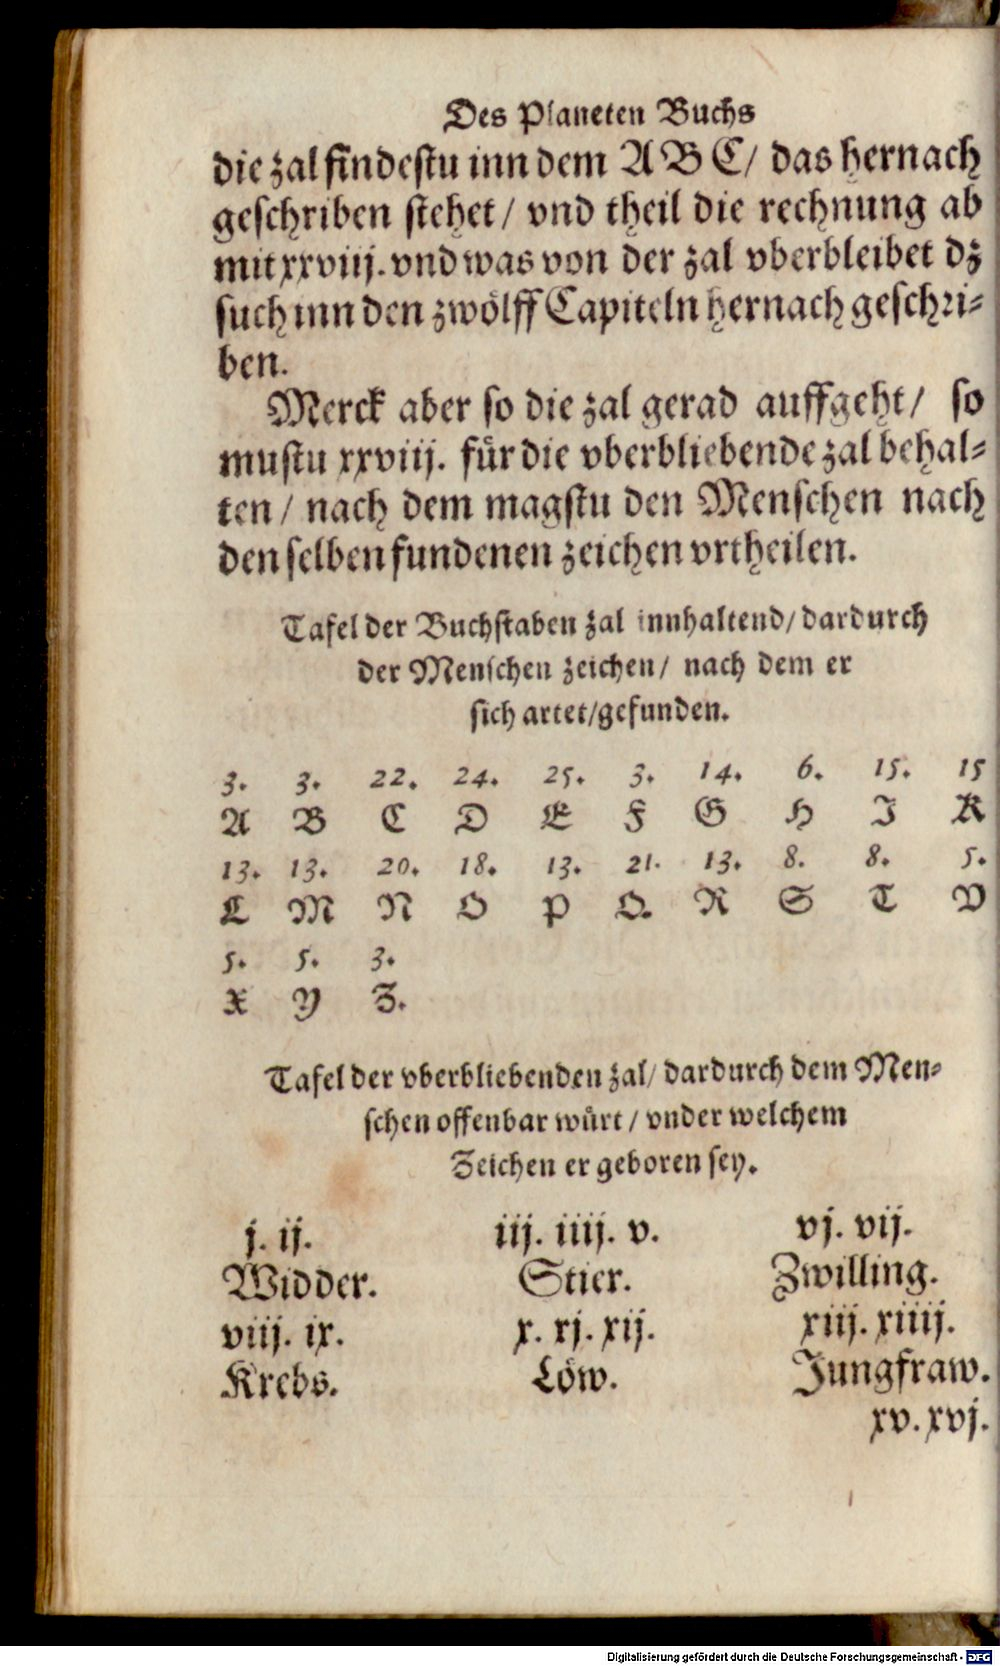 Des Planeten Buchs
die zal findestu inn dem A B C/ das hernach
geschriben stehet/ vnd theil die rechnung ab
mit xxviij. vnd was von der zal vberbleibet dz
such inn den zwölff Capiteln hernach geschri-
ben.
Merck aber so die zal gerad auffgeht/ so
mustu xxviij. für die vberbliebende zal behal-
ten/ nach dem magstu den Menschen nach
den selben fundenen zeichen vrtheilen.
Tafel der Buchstaben zal innhaltend/ dardurch
der Menschen zeichen/ nach dem er
sich artet/gefunden.
3. 3. 22. 24. 25. 3. 14. 6. 15. 15
A B C D E F G H I K
13. 13. 20. 18. 13. 21. 13. 8. 8. 5.
L M N O P Q. R S T V
5. 5. 3.
X Y Z.
Tafel der vberbliebenden zal/ dardurch dem Men-
schen offenbar würt/ vnder welchem
Zeichen er geboren sey.
j. ij. iij. iiij. v. vj. vij.
Widder. Stier. Zwilling.
viij. ix. x. xj. xij. xiij. xiiij.
Krebs. Löw. Jungfraw.
xv. xvj.
Digitalisierung gefördert durch die Deutsche Forschungsgemeinschaft - DFG